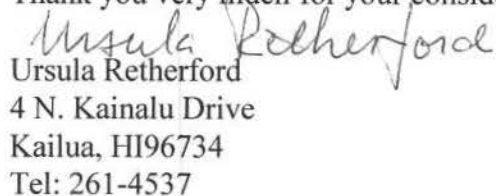 Thank you very much for your consid
Ursula Retherford
Ursula Retherford
4 N. Kainalu Drive
Kailua, HI96734
Tel: 261-4537